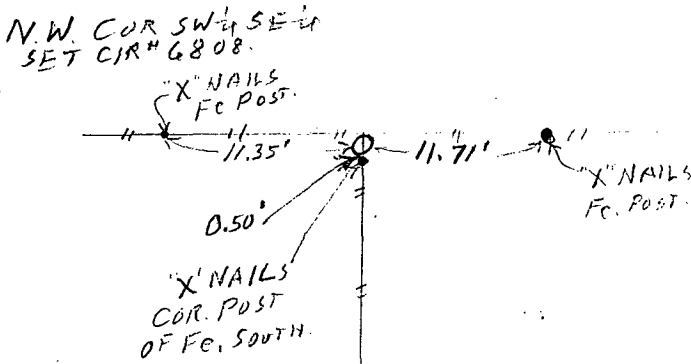 N.W. COR SW¼ SE¼
SET CIR# 6808.
"X" NAILS
FC POST.
11.35'
11.71'
"X" NAILS
FC. POST.
0.50'
"X" NAILS
COR. POST
OF FC. SOUTH.